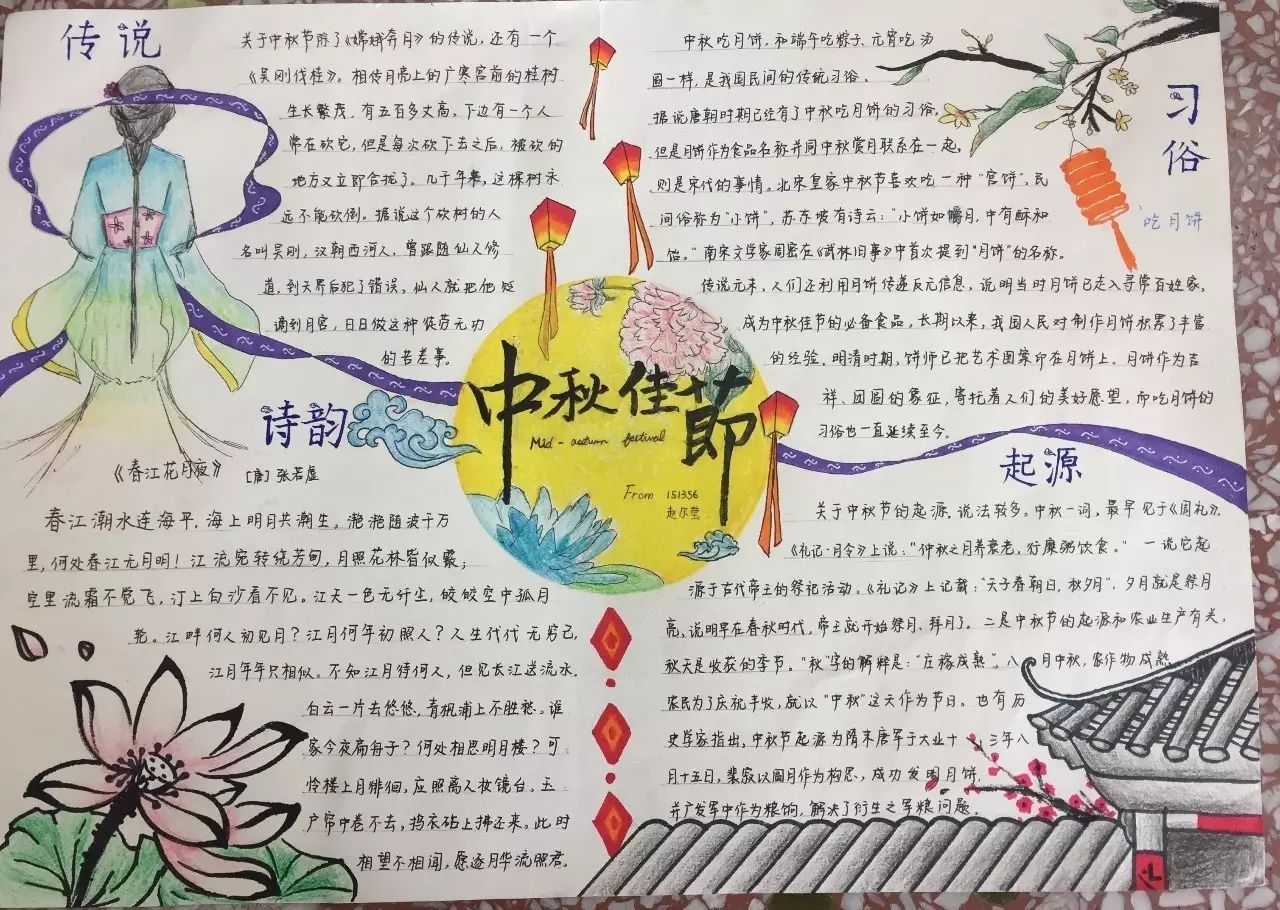 传说
关于中秋节除了《嫦娥奔月》的传说,还有一个
《吴刚伐桂》。相传月亮上的广寒宫前的桂树
生长繁茂,有五百多丈高。下边有一个人
常在砍它,但是每次砍下去之后,被砍的
地方又立即合拢了。几千年来,这棵树永
远不能砍倒。据说这个砍树的人
名叫吴刚,汉朝西河人,曾跟随仙人修
道,到天界后犯了错误。仙人就把他贬
谪到月宫,日日做这种徒劳无功
的苦差事。
诗韵
《春江花月夜》 [唐] 张若虚
春江潮水连海平,海上明月共潮生。滟滟随波千万
里,何处春江无月明!江流宛转绕芳甸,月照花林皆似霰;
空里流霜不觉飞,汀上白沙看不见。江天一色无纤尘,皎皎空中孤月
轮。江畔何人初见月?江月何年初照人?人生代代无穷已,
江月年年只相似。不知江月待何人,但见长江送流水。
白云一片去悠悠,青枫浦上不胜愁。谁
家今夜扁舟子?何处相思明月楼?可
怜楼上月徘徊,应照离人妆镜台。玉
户帘中卷不去,捣衣砧上拂还来。此时
相望不相闻,愿逐月华流照君。
中秋佳節
Mid-autumn festival
From 151356
中秋吃月饼,和端午吃粽子、元宵吃汤
圆一样,是我国民间的传统习俗。
据说唐朝时期已经有了中秋吃月饼的习俗。
但是月饼作为食品名称并同中秋赏月联系在一起。
则是宋代的事情。北宋皇家中秋节喜欢吃一种“宫饼”,民
间俗称为“小饼”,苏东坡有诗云:“小饼如嚼月,中有酥和
饴。”南宋文学家周密在《武林旧事》中首次提到“月饼”的名称。
传说元末,人们还利用月饼传递反元信息,说明当时月饼已走入寻常百姓家,
成为中秋佳节的必备食品。长期以来,我国人民对制作月饼积累了丰富
的经验,明清时期,饼师已把艺术图案印在月饼上。月饼作为吉
祥、团圆的象征,寄托着人们的美好愿望,而吃月饼的
习俗也一直延续至今。
习俗
吃月饼
起源
关于中秋节的起源,说法较多。中秋一词,最早见于《周礼》,
《礼记·月令》上说:“仲秋之月养衰老,行糜粥饮食。”一说它起
源于古代帝王的祭祀活动。《礼记》上记载:“天子春朝日,秋夕月”,夕月就是祭月
亮,说明早在春秋时代,帝王就开始祭月、拜月了。二是中秋节的起源和农业生产有关,
秋天是收获的季节。“秋”字的解释是:“庄稼成熟”。八月中秋,农作物成熟
农民为了庆祝丰收,就以“中秋”这天作为节日。也有历
史学家指出,中秋节起源为隋末唐军于大业十三年八
月十五日,裴寂以圆月作为构思,成功发明月饼
并广发军中作为粮饷,解决了衍生之军粮问题。